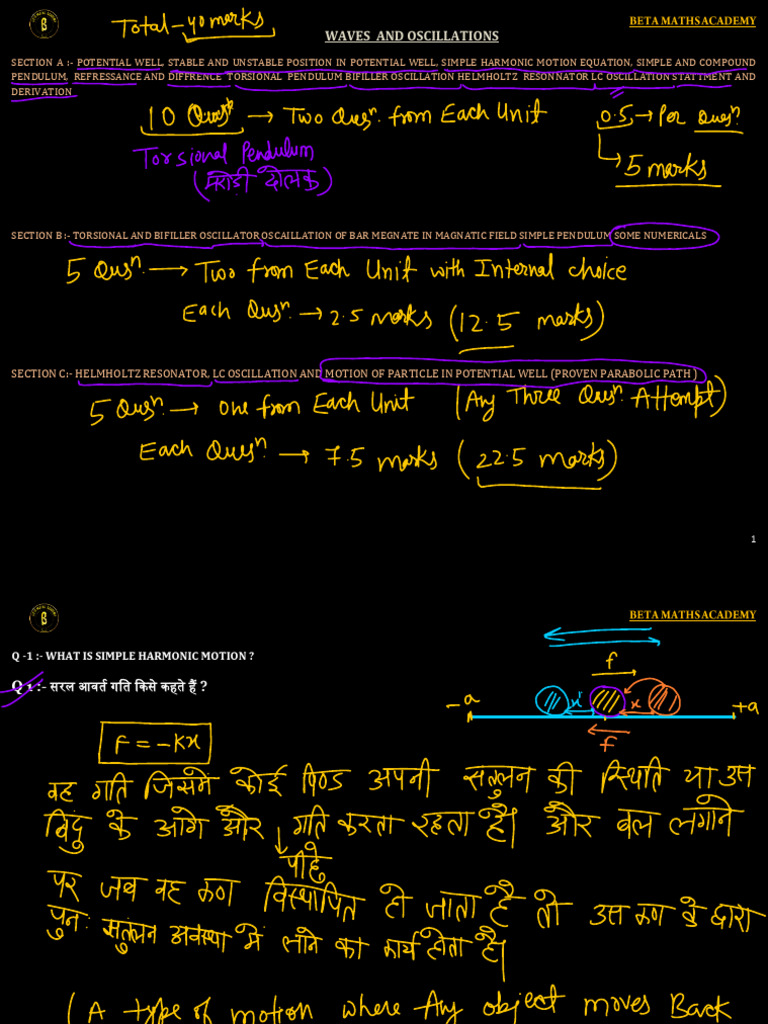 BETA MATHS ACADEMY
Total - 40 marks
WAVES AND OSCILLATIONS
SECTION A :- POTENTIAL WELL, STABLE AND UNSTABLE POSITION IN POTENTIAL WELL, SIMPLE HARMONIC MOTION EQUATION, SIMPLE AND COMPOUND
PENDULUM, REFRESSANCE AND DIFFRENCE TORSIONAL PENDULUM BIFILLER OSCILLATION HELMHOLTZ RESONNATOR LC OSCILLATION STATTMENT AND
DERIVATION
10 Quesn → Two Quesn. from Each Unit 0.5 → Per Quesn.
5 marks
Torsional Pendulum
(मरोड़ी दोलक)
SECTION B :- TORSIONAL AND BIFILLER OSCILLATOR OSCAILLATION OF BAR MEGNATE IN MAGNATIC FIELD SIMPLE PENDULUM SOME NUMERICALS
5 Quesn. → Two from Each Unit with Internal choice
Each Quesn. → 2.5 marks (12.5 marks)
SECTION C:- HELMHOLTZ RESONATOR, LC OSCILLATION AND MOTION OF PARTICLE IN POTENTIAL WELL (PROVEN PARABOLIC PATH )
5 Quesn. → one from Each Unit (Any Three Quesn. Attempt)
Each Quesn. → 7.5 marks (22.5 marks)
1
β
BETA MATHS ACADEMY
Q -1 :- WHAT IS SIMPLE HARMONIC MOTION ?
Q 1 :- सरल आवर्त गति किसे कहते हैं ?
f
-a x' x +a
f
F = -Kx
वह गति जिसमे कोई पिण्ड अपनी सतुलन की स्थिति या उस
बिंदु के आगे और गति करता रहता है। और बल लगाने
पीछे
पर जब वह कण विस्थापित हो जाता है तो उस कण के द्वारा
पुनः सतुलन अवस्था मे लाने का कार्य होता है।
(A type of motion where Any object moves Back